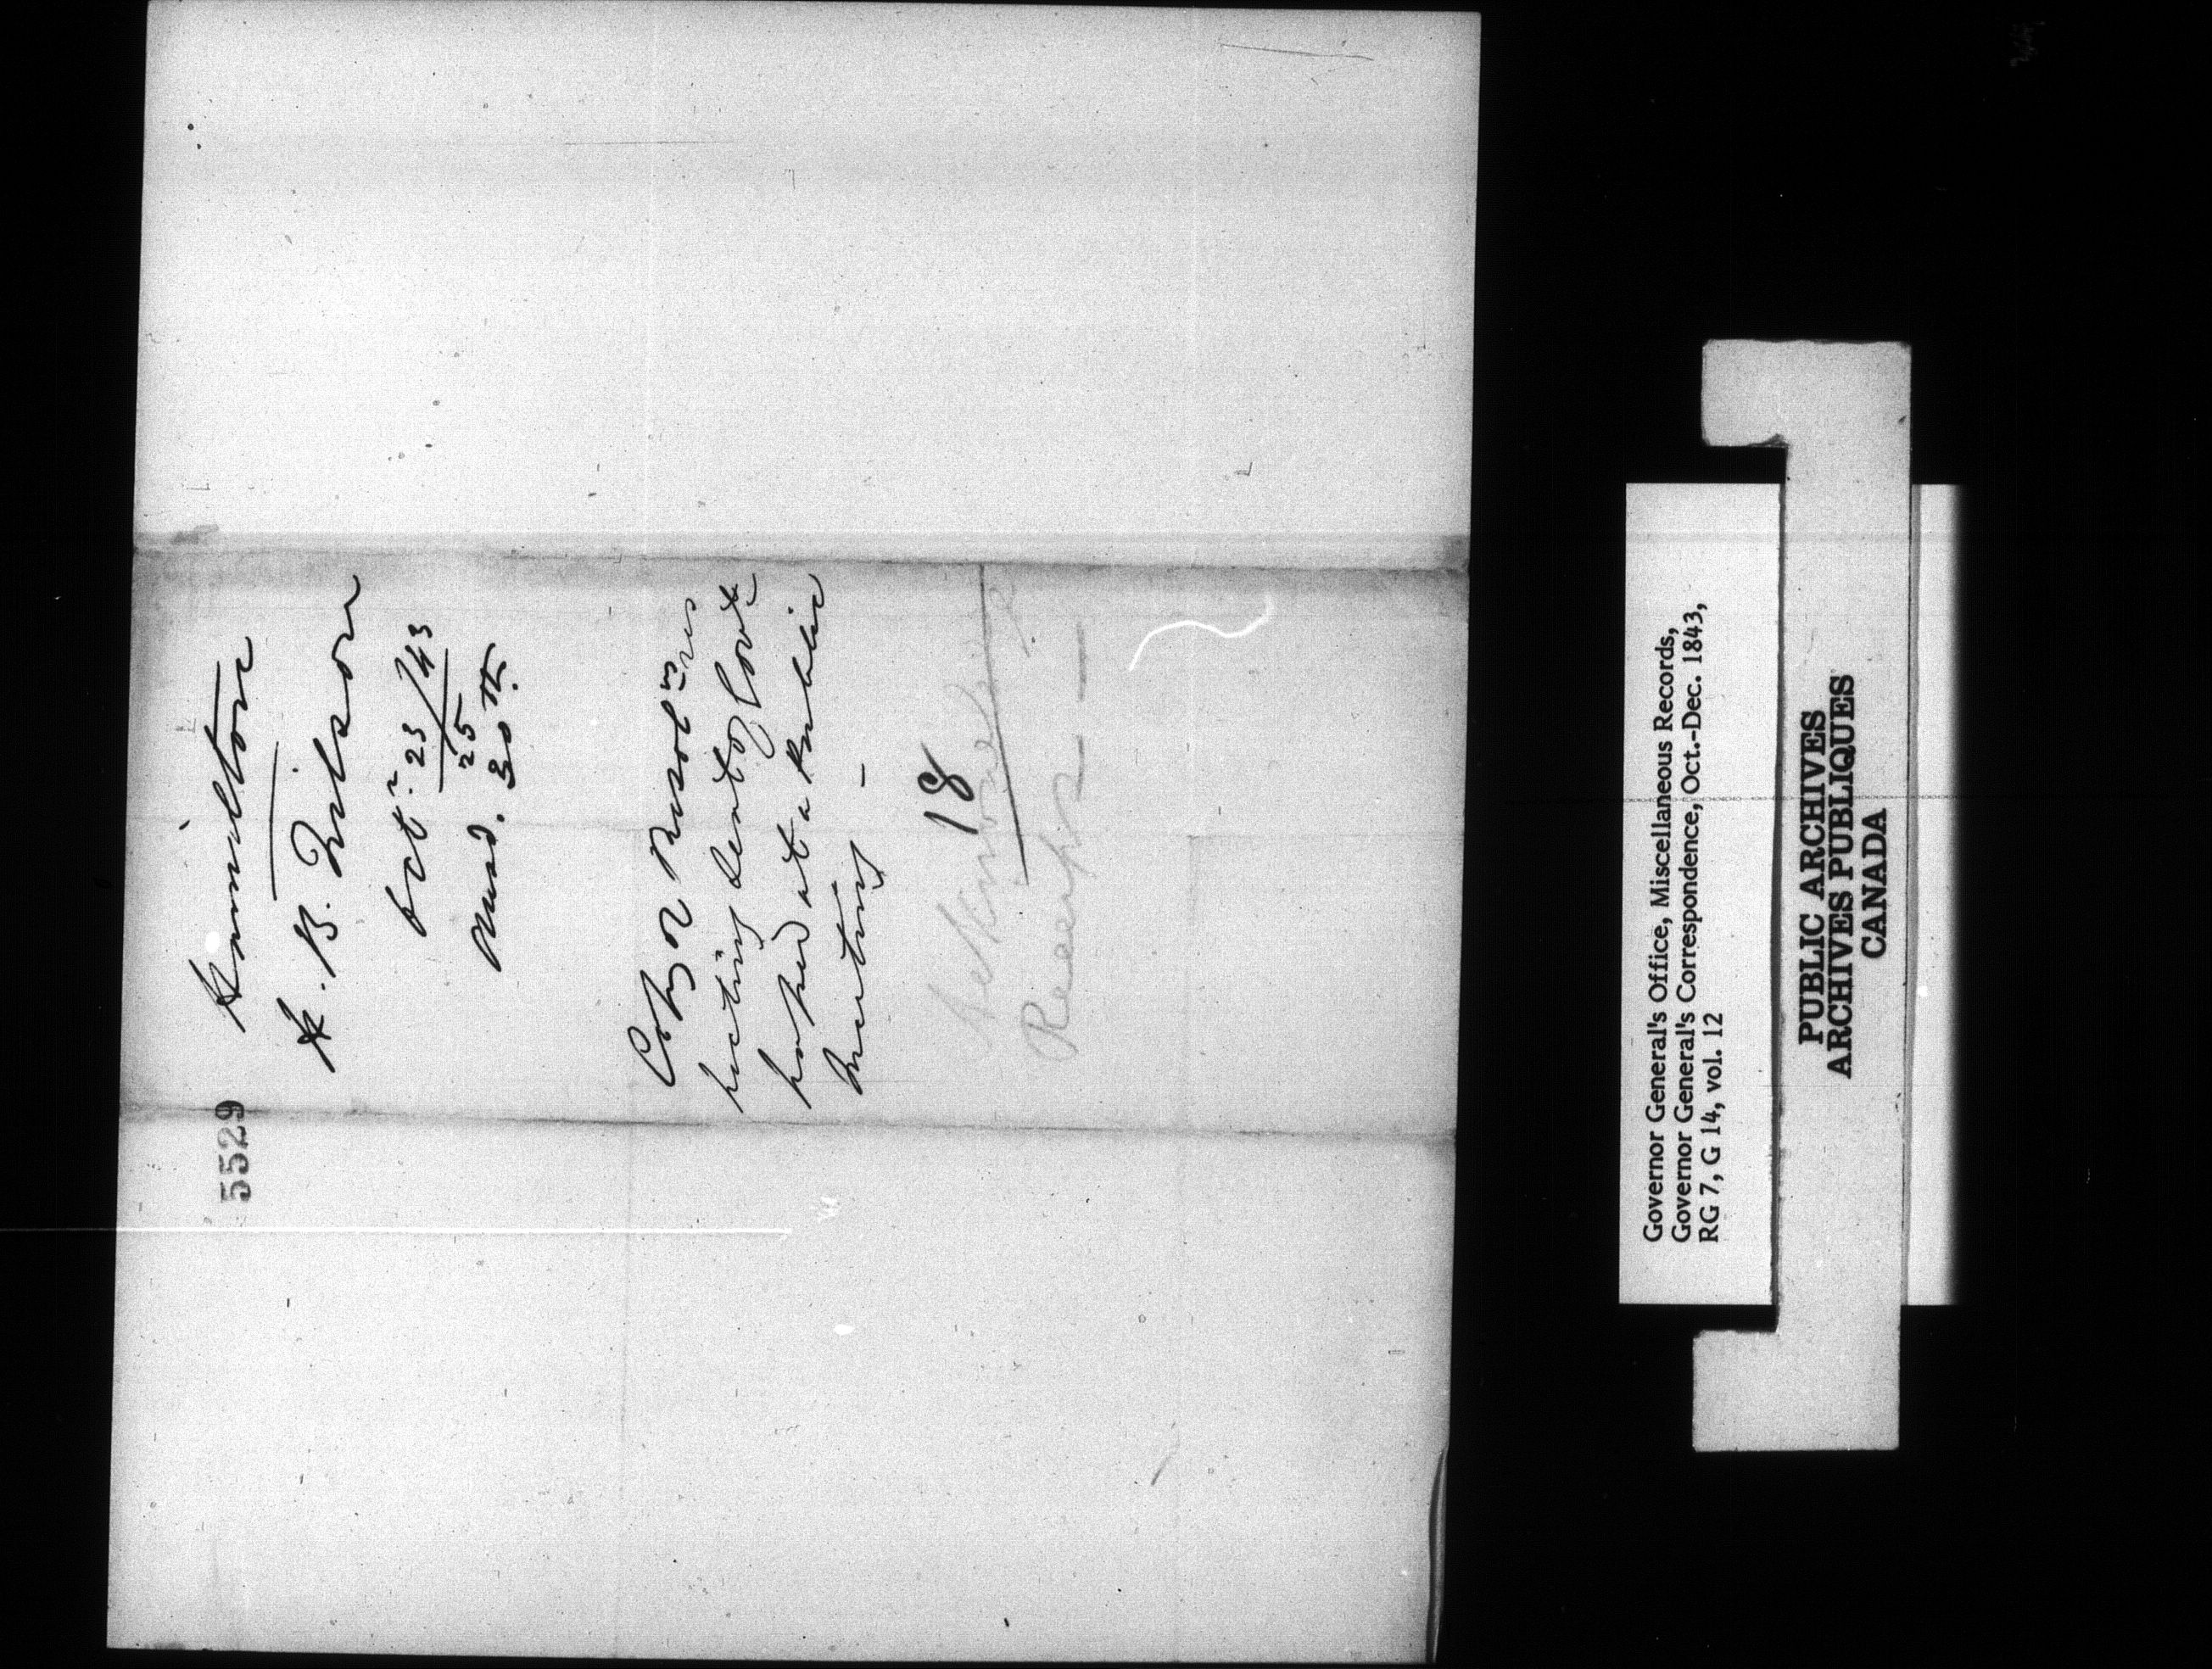 5529
Hamilton
H. B. Wilson
Octr. 23/43
25
Ansd. 30th.
Copy of Resolns res
pecting Seat of Govt
passed at a Public
Meeting –
18
Acknowledge
Receipt –
Governor General's Office, Miscellaneous Records,
Governor General's Correspondence, Oct.-Dec. 1843,
RG 7, G 14, vol. 12
PUBLIC ARCHIVES
ARCHIVES PUBLIQUES
CANADA